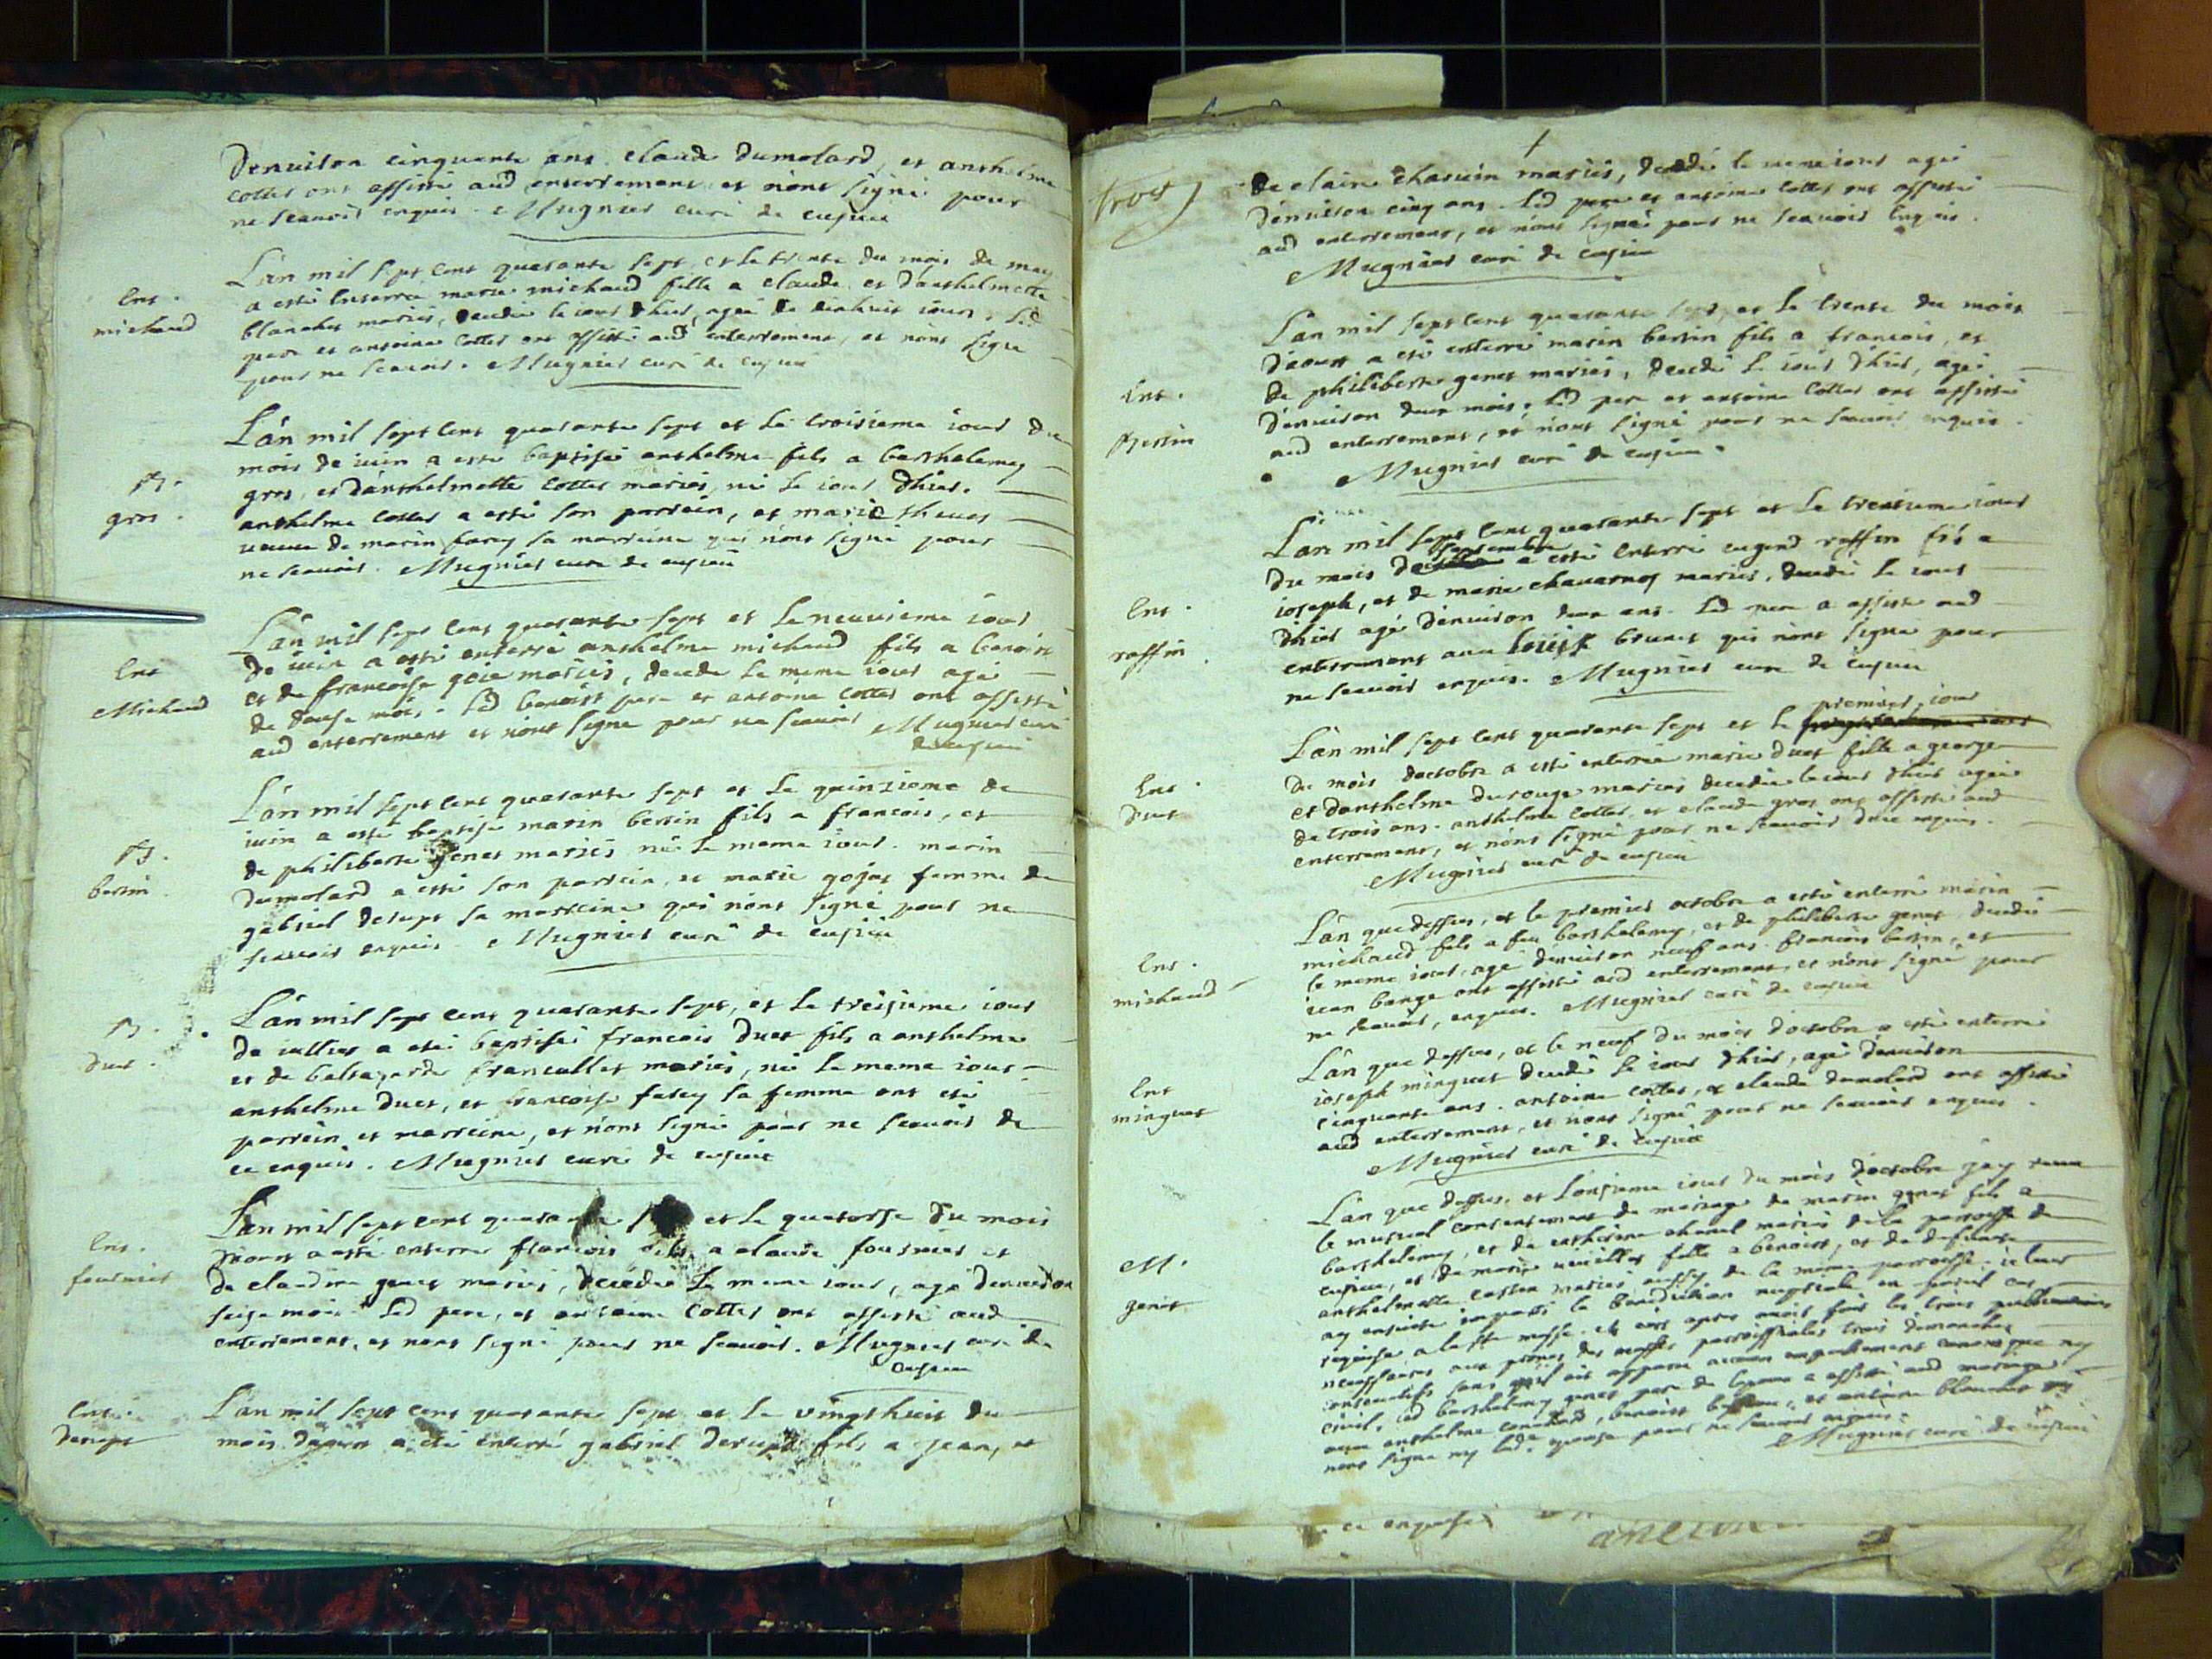 Denuiron cinquante ans. claude Dumolard, et anthelme
cottet ont assisté aud enterrement et n'ont signé pour
ne scauoir enquis. Mugnier curé de cusieu
Ent.
michaud
L'an mil sept cent quarante sept, et le trente du mois de may
a esté enterrée marie michaud fille a claude et d'anthelmette
blanchet mariés, decedée le iour d'hier, agée de dixhuit iours. led
pere et antoine cottet ont assisté aud enterrement, et n'ont signé
pour ne scauoir. Mugnier curé de cusieu
B.
gros.
L'an mil sept cent quarante sept et le troisieme iour du
mois de iuin a esté baptisé anthelme fils a barthelemy
gros, et d'anthelmette cottet mariés, né le iour d'hier.
anthelme cottet a esté son parrein, et marie
veuue de marin farcy sa marreine qui n'ont signé pour
ne scauoir. Mugnier curé de cusieu
Ent
Michaud
L'an mil sept cent quarante sept et le neuuieme iour
de iuin a esté enterré anthelme michaud fils a benoist
et de francoise goie mariés, decedé le meme iour agé
de douse mois. led benoist pere et antoine cottet ont assisté
aud enterrement et n'ont signé pour ne scauoir Mugnier curé
de cusieu
B.
bertin
L'an mil sept cent quarante sept et le quinzieme de
iuin a esté baptisé marin bertin fils a francois, et
de philiberte genet mariés né le meme iour. marin
dumolard a esté son parrein, et marie gojat femme de
gabriel derupt sa marreine qui n'ont signé pour ne
scauoir enquis. Mugnier curé de cusieu
B.
duet.
L'an mil sept cent quarante sept, et le treisieme iour
de iuillet a esté baptisé francois Duet fils a anthelme
et de francallet mariés, né le meme iour.
anthelme Duet, et francoise farcy sa femme ont esté
parrein et marreine, et n'ont signé pour ne scauoir de
ce enquis. Mugnier curé de cusieu
Ent.
fournier
L'an mil sept cent quarante et le quatorse du mois
d'aoust a esté enterré francois fils a claude fournier et
de claudine genet mariés, decedé le meme iour, agé denuiron
seise mois. led pere, et antoine cottet ont assisté aud
enterrement, et n'ont signé pour ne scauoir. Mugnier curé de
cusieu
Ent.
Derupt
L'an mil sept cent quarante sept et le vingthuit du
mois d'aoust a esté enterré gabriel derupt fils a jean, et
trois
de claire mariés, decedé le meme iour agé
denuiron cinq ans. led pere et antoine cottet ont assisté
aud enterrement, et n'ont signé pour ne scauoir enquis.
Mugnier curé de cusieu
Ent.
Bertin
L'an mil sept cent quarante sept, et le trente du mois
d'aoust a esté enterré marin bertin fils a francois, et
de philiberte genet mariés, decedé le iour d'hier, agé
denuiron deux mois. led pere et antoine cottet ont assisté
aud enterrement, et n'ont signé pour ne scauoir enquis.
Mugnier curé de cusieu
Ent.
raffin.
L'an mil sept cent quarante sept et le trentieme iour
du mois de septembre a esté enterré eugend raffin fils a
ioseph, et de marie mariés, decedé le iour
d'hier agé denuiron deux ans. led pere a assisté aud
enterrement auec brunet qui n'ont signé pour
ne scauoir enquis. Mugnier curé de cusieu
Ent.
Duet
L'an mil sept cent quarante sept et le premier iour
du mois doctobre a esté enterrée marie duet fille a george
et danthelme durouge mariés decedée le iour d'hier agée
de trois ans. anthelme cottet, et claude gros ont assisté aud
enterrement, et n'ont signé pour ne scauoir dece enquis.
Mugnier curé de cusieu
Ent.
michaud
L'an que dessus, et le premier octobre a esté enterré marin
michaud fils a feu barthelemy, et de philiberte genet, decedé
le meme iour, agé denuiron neuf ans. francois bertin, et
iean ont assisté aud enterrement, et n'ont signé pour
ne scauoir, enquis. Mugnier curé de cusieu
Ent
minguet
L'an que dessus, et le neuf du mois doctobre a esté enterré
ioseph minguet decedé le iour d'hier, agé denuiron
cinquante ans. antoine cottet, et claude dumolard ont assisté
aud enterrement, et n'ont signé pour ne scauoir enquis.
Mugnier curé de cusieu
M.
genet
L'an que dessus, et l'onsieme iour du mois doctobre jay
le mutuel consentement de mariage de marin genet fils a
barthelemy, et de catherine mariés de la parroisse de
cusieu, et de marie fille a benoist, et de
anthelmette mariés aussy de la meme parroisse. ie leur
ay ensuite imparti la benediction nuptiale en
requise, a la ste messe. et ce apres auoir fait les trois publications
necessaires aux prones des messes parroissiales trois dimanches
consecutifs sans qu'il ait apparu aucun empechement canonique ny
ciuil. led barthelemy genet pere de l'epoux a assisté aud mariage
auec anthelme, benoist, et antoine blanchet qui
n'ont signé ny lad. epouse pour ne scauoir enquis.
Mugnier curé de cusieu